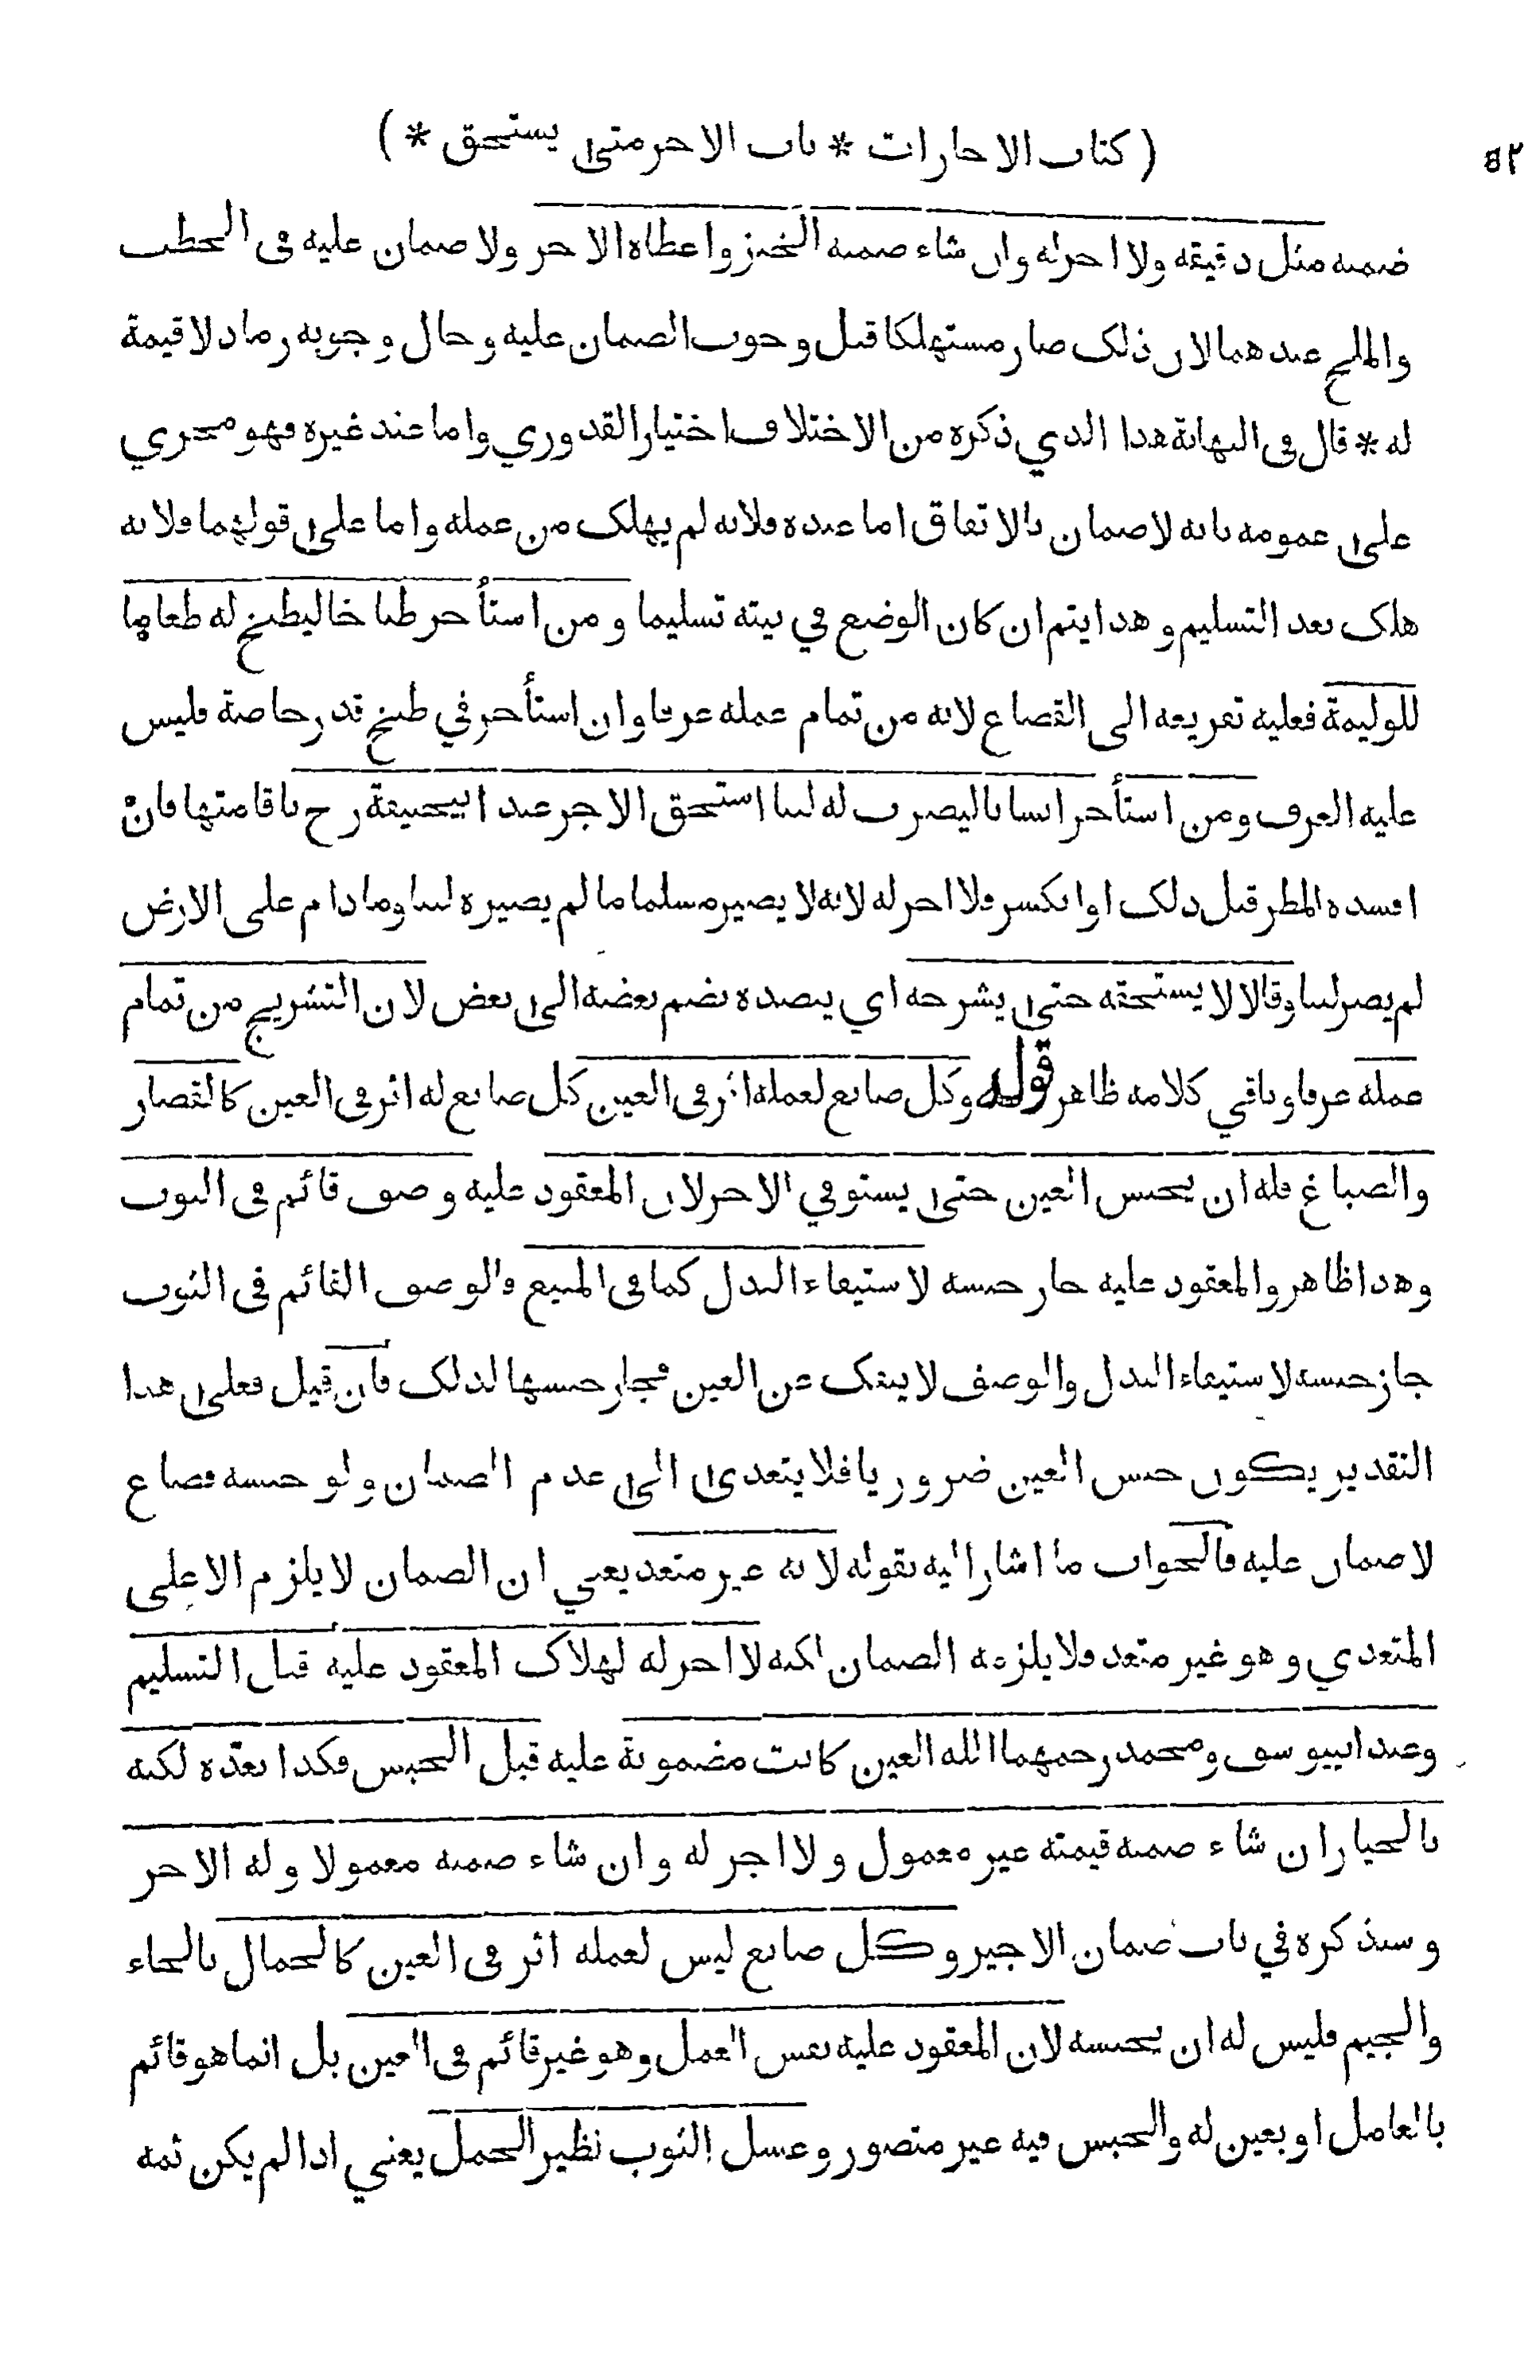 ٥٢ ( كتاب الاجارات * باب الاجر متى يستحق * )
ضمنه مثل دقيقه ولا اجر له وان شاء ضمنه الخبز واعطاه الاجر ولا ضمان عليه في الحطب
والملح عندهما لان ذلك صار مستهلكا قبل وجوب الضمان عليه وحال وجوبه رماد لا قيمة
له * قال في النهاية هذا الذي ذكره من الاختلاف اختيار القدوري واما عند غيره فهو مجري
على عمومه بانه لا ضمان بالاتفاق اما عنده فلانه لم يهلك من عمله واما على قولهما فلانه
هلك بعد التسليم وهذا يتم ان كان الوضع في بيته تسليما ومن استأجر طباخا ليطبخ له طعاما
للوليمة فعليه تفريغه الى القصاع لانه من تمام عمله عرفا وان استأجر في طبخ قدر خاصة فليس
عليه العرف ومن استأجر انسانا ليضرب له لبنا استحق الاجر عند ابيحنيفة رح باقامتها فان
افسده المطر قبل ذلك او انكسر فلا اجر له لانه لا يصير مسلما ما لم يصيره لبنا وما دام على الارض
لم يصر لبنا وقالا لا يستحقه حتى يشرجه اي ينضده بضم بعضه الى بعض لان التشريج من تمام
عمله عرفا وباقي كلامه ظاهر قوله وكل صانع لعمله اثر في العين كل صانع له اثر في العين كالقصار
والصباغ فله ان يحبس العين حتى يستوفي الاجر لان المعقود عليه وصف قائم في الثوب
وهذا ظاهر والمعقود عليه جاز حبسه لاستيفاء البدل كما في المبيع فالوصف القائم في الثوب
جاز حبسه لاستيفاء البدل والوصف لا ينفك عن العين فجاز حبسها لذلك فان قيل فعلى هذا
التقدير يكون حبس العين ضروريا فلا يتعدى الى عدم الضمان ولو حبسه فضاع
لا ضمان عليه فالجواب ما اشار اليه بقوله لانه غير متعد يعني ان الضمان لا يلزم الا على
المتعدي وهو غير متعد فلا يلزمه الضمان لكنه لا اجر له لهلاك المعقود عليه قبل التسليم
وعند ابييوسف ومحمد رحمهما الله العين كانت مضمونة عليه قبل الحبس فكذا بعده لكنه
بالخيار ان شاء ضمنه قيمته غير معمول ولا اجر له وان شاء ضمنه معمولا وله الاجر
وسنذكره في باب ضمان الاجير وكل صانع ليس لعمله اثر في العين كالحمال بالحاء
والجيم فليس له ان يحبسه لان المعقود عليه نفس العمل وهو غير قائم في العين بل انما هو قائم
بالعامل او بعين له والحبس فيه غير متصور وغسل الثوب نظير الحمل يعني اذا لم يكن ثمه